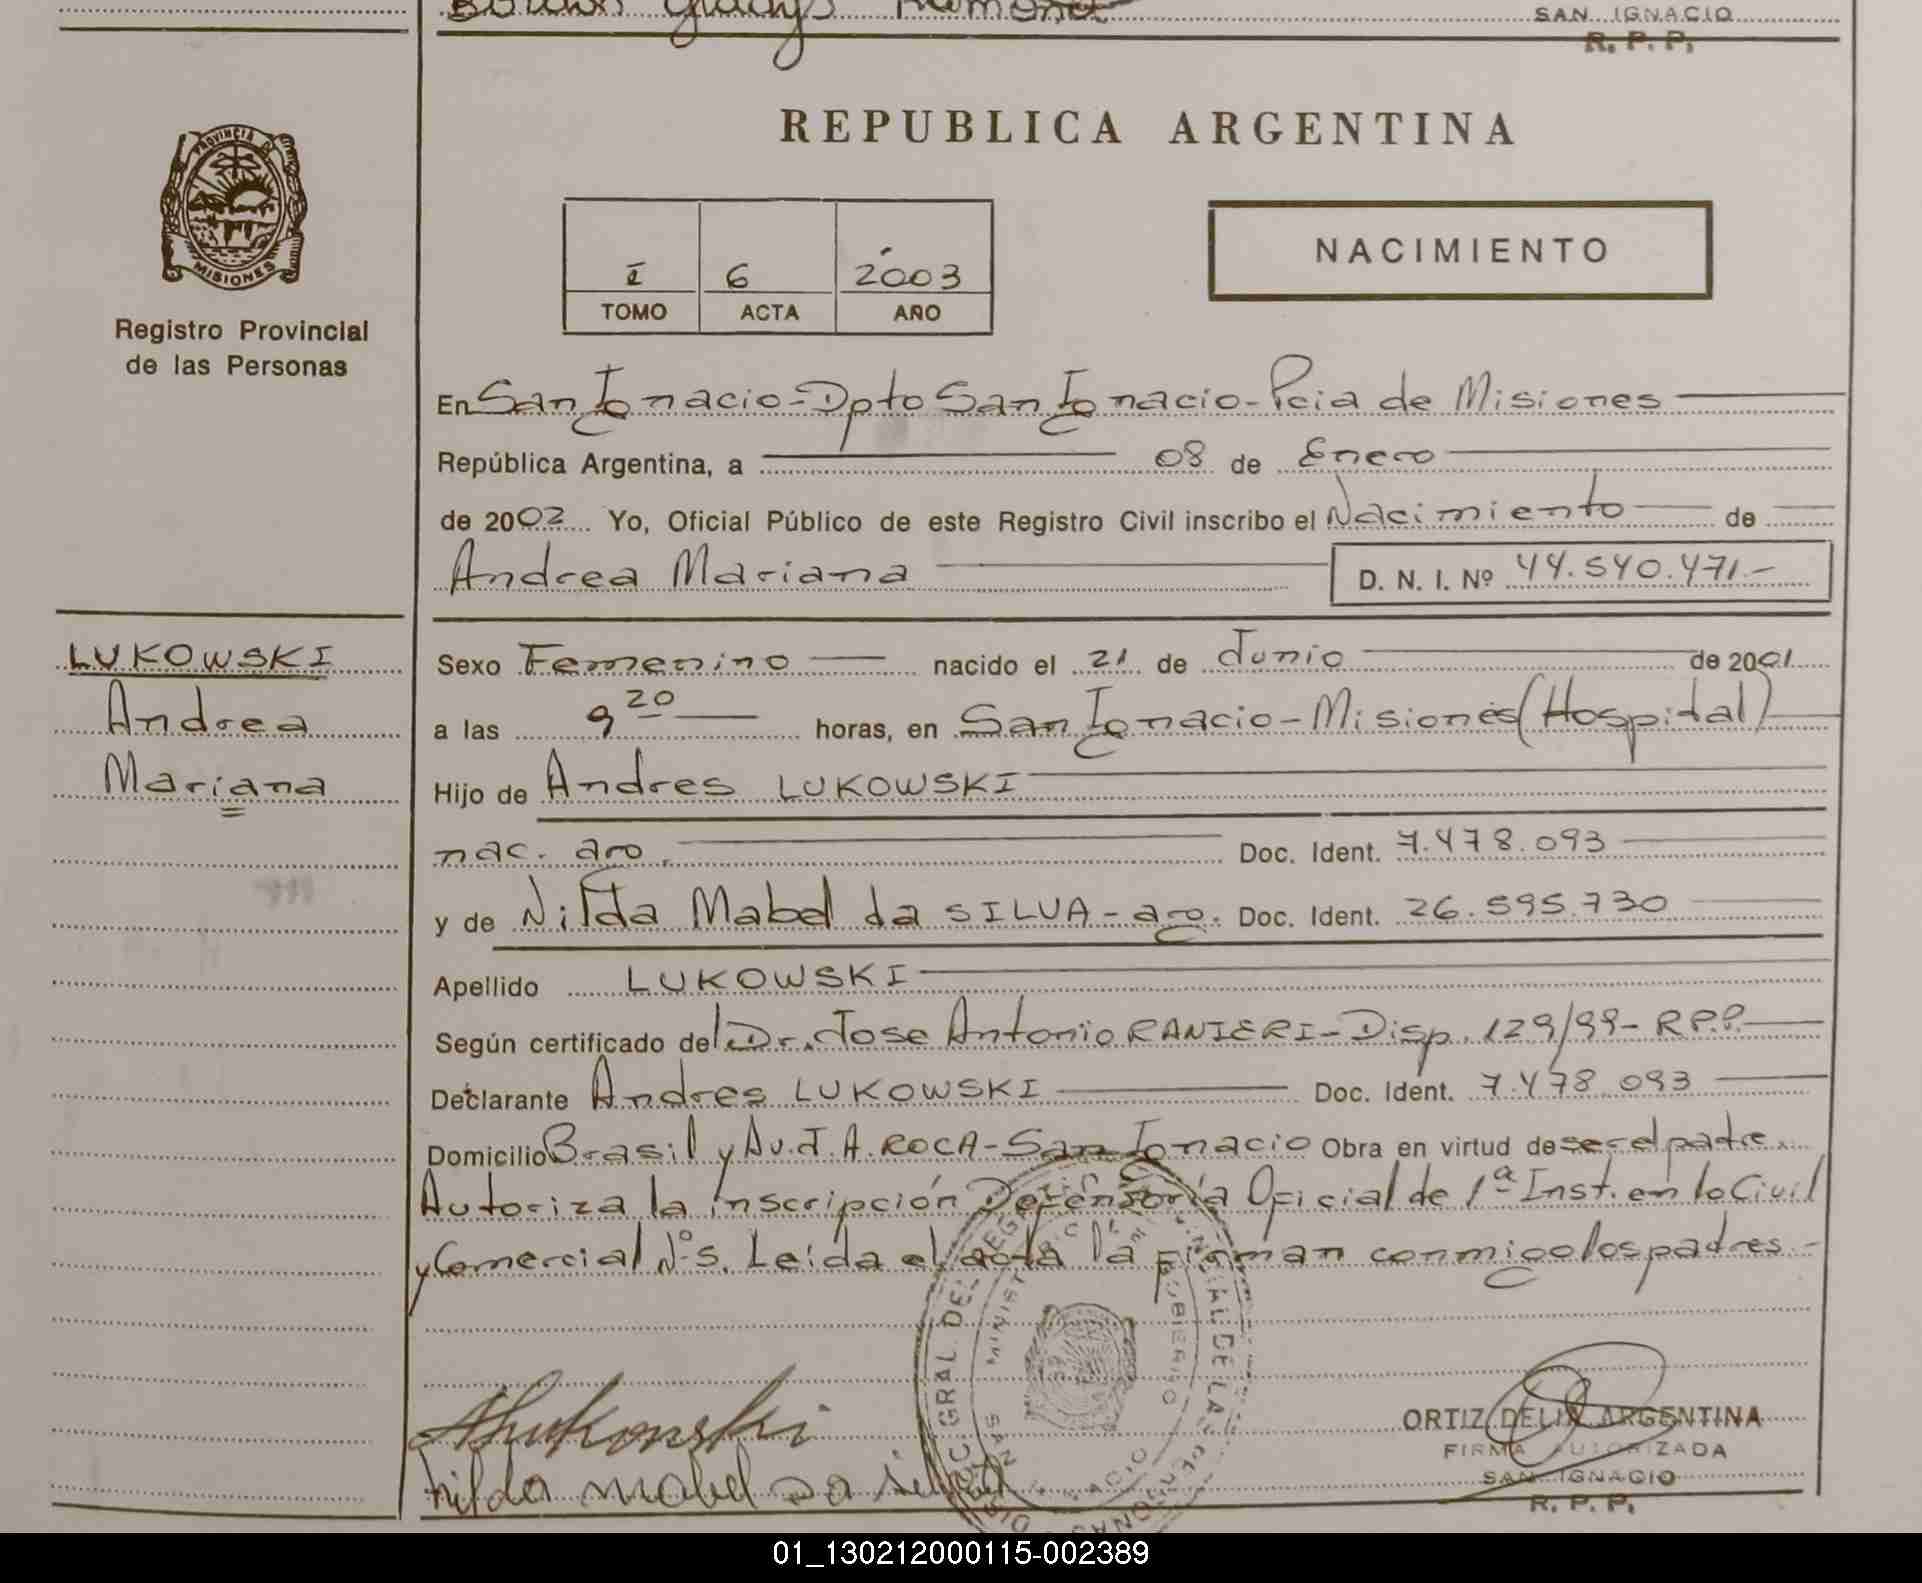 Gladys Ramona
SAN IGNACIO
R. P. P.
REPUBLICA ARGENTINA
PROVINCIA DE
MISIONES
Registro Provincial
de las Personas
I 6 2003
TOMO ACTA AÑO
NACIMIENTO
En San Ignacio - Dpto San Ignacio - Pcia de Misiones
República Argentina, a 08 de Enero
de 2002 Yo, Oficial Público de este Registro Civil inscribo el Nacimiento de
Andrea Mariana D. N. I. Nº 44.540.471.-
LUKOWSKI
Andrea
Mariana
Sexo Femenino nacido el 21 de Junio de 2001
a las 9 20 horas, en San Ignacio - Misiones (Hospital)
Hijo de Andres LUKOWSKI
nac. arg. Doc. Ident. 7.478.093
y de Nilda Mabel da SILVA - arg. Doc. Ident. 26.595.730
Apellido LUKOWSKI
Según certificado del Dr. Jose Antonio RANIERI - Disp. 129/99 - R.P.P.
Declarante Andres LUKOWSKI Doc. Ident. 7.478.093
Domicilio Brasil y Av. J. A. ROCA - San Ignacio Obra en virtud de ser el padre.
Autoriza la inscripción Defensoría Oficial de 1ª Inst. en lo Civil
y Comercial Nº 5. Leida el acta la firman conmigo los padres.-
ALukowski
Nilda Mabel Da Silva
ORTIZ DELIA ARGENTINA
FIRMA AUTORIZADA
SAN IGNACIO
R. P. P.
01_130212000115-002389